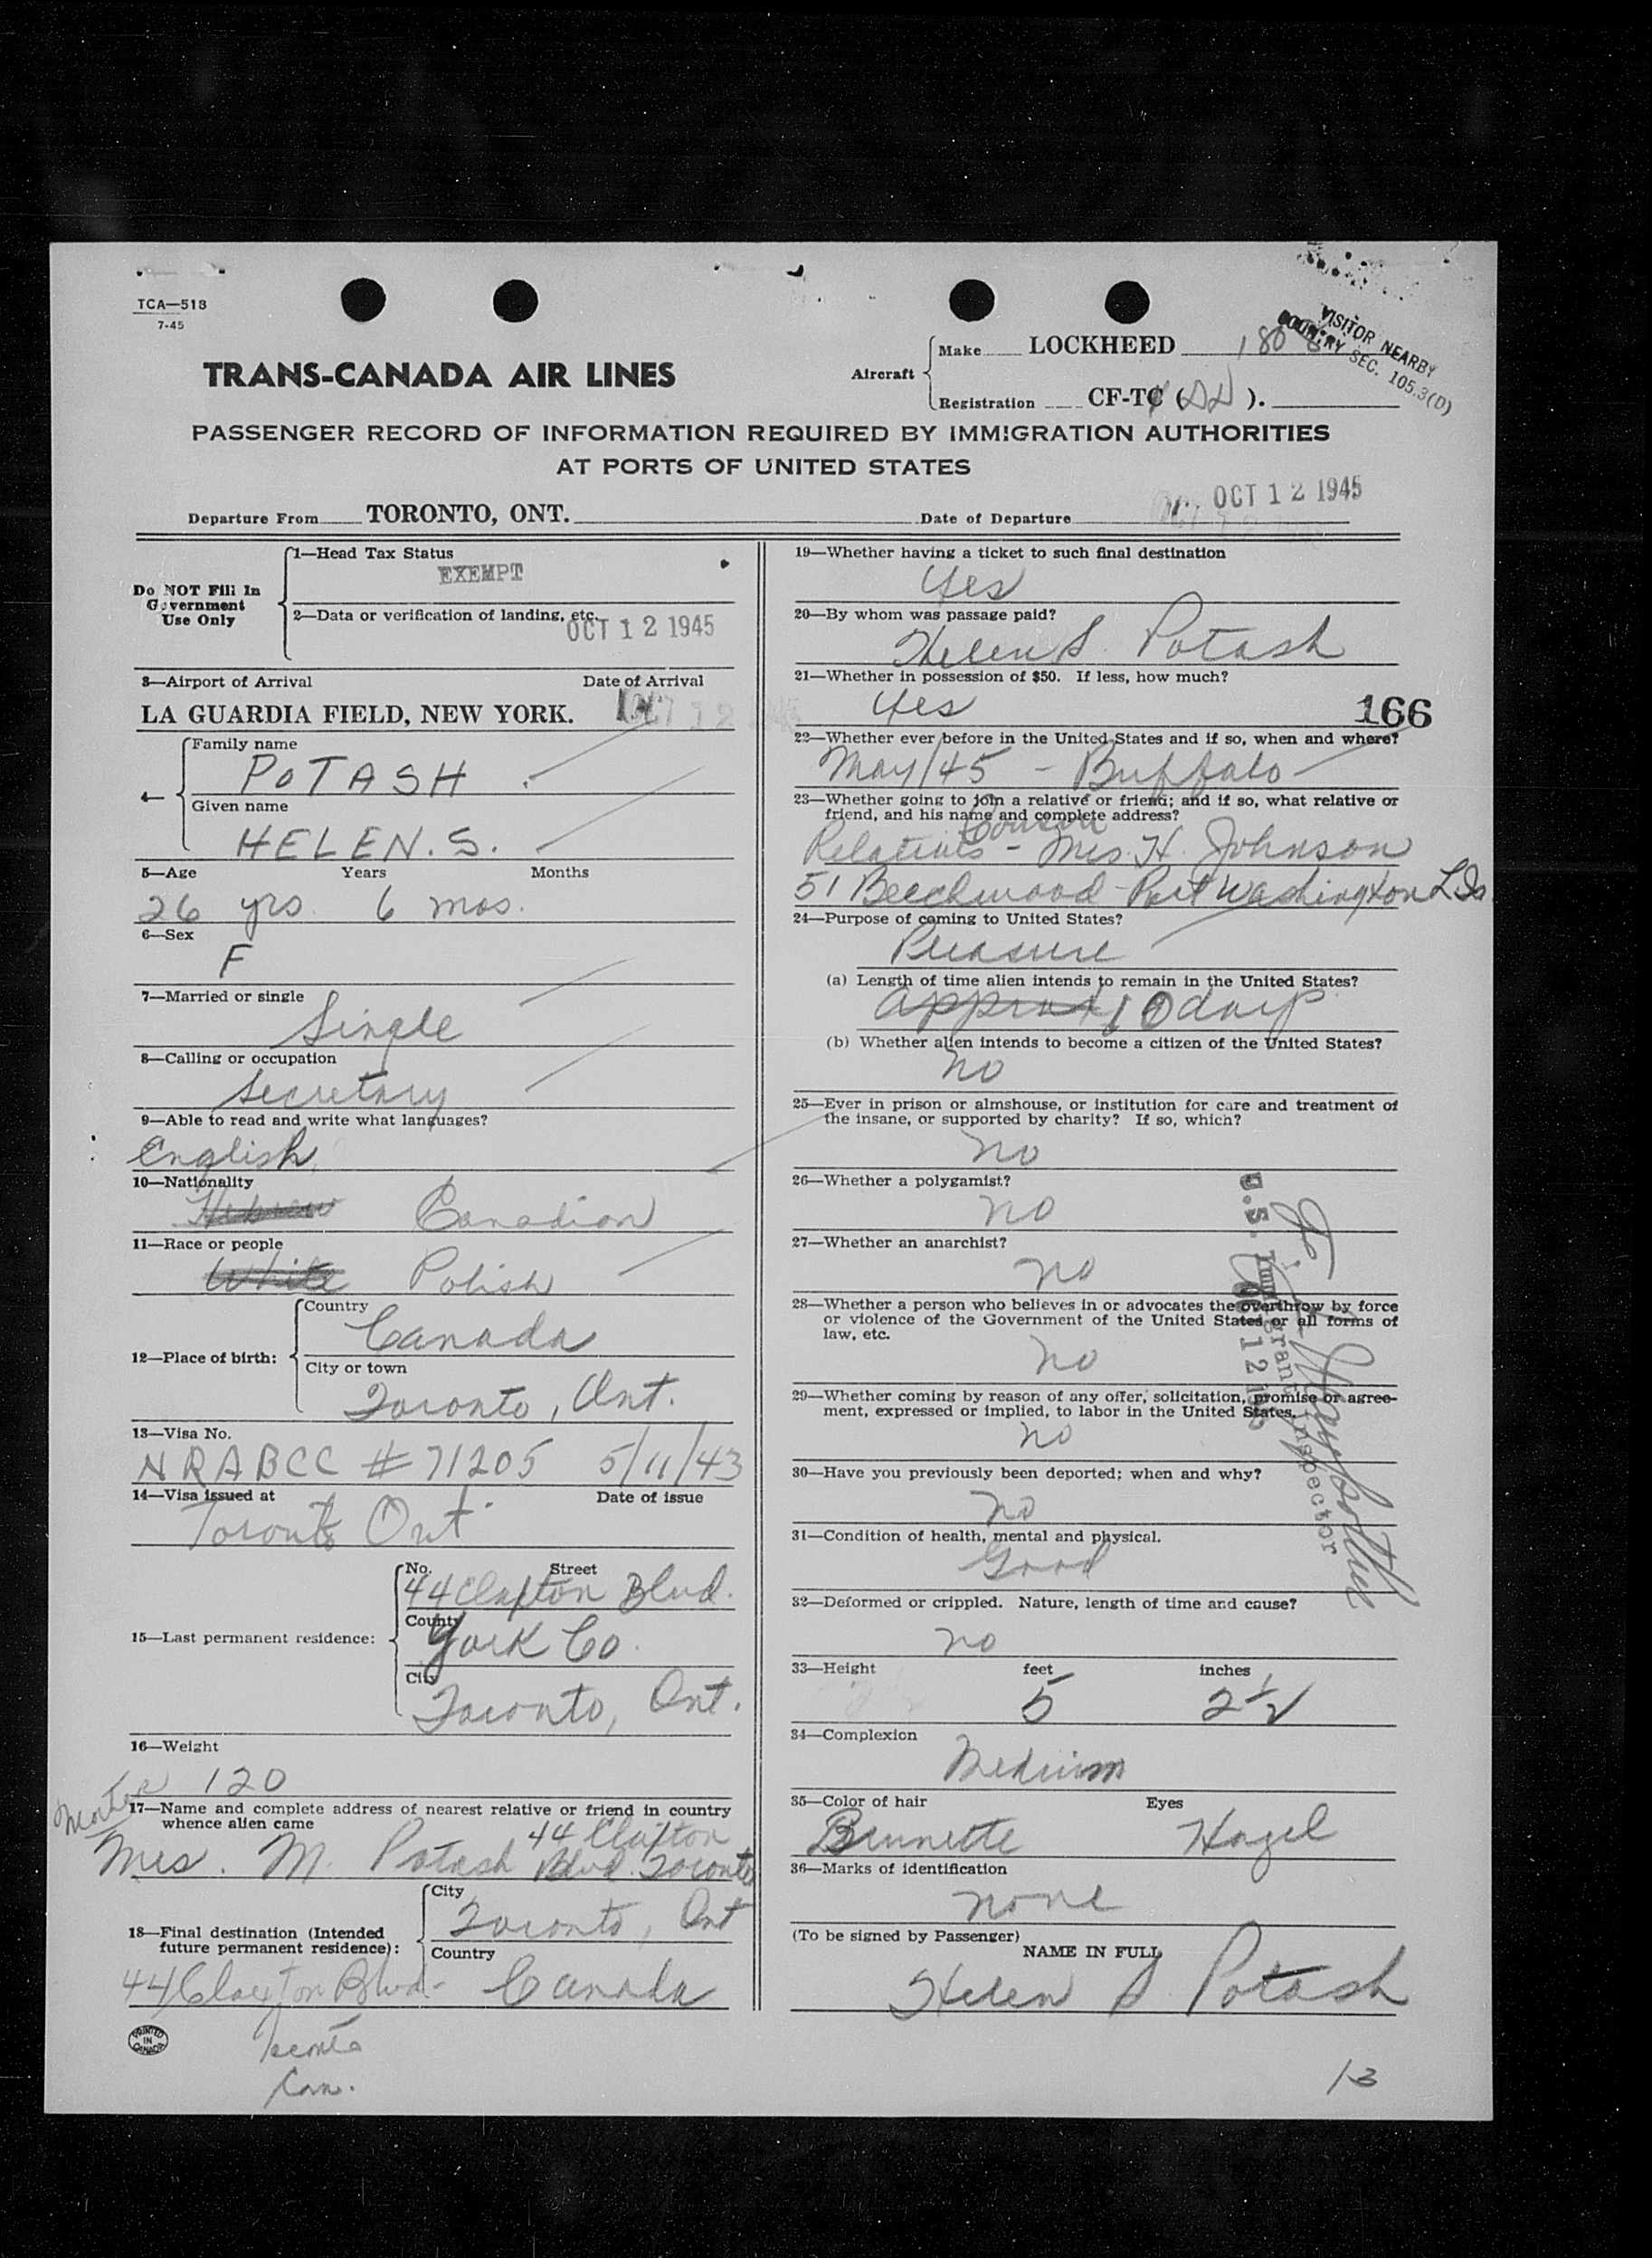 TCA—518
7-45
VISITOR NEARBY
COUNTRY SEC. 105.3(D)
TRANS-CANADA AIR LINES
Aircraft
Make LOCKHEED 1808
Registration CF-TC ( ).
PASSENGER RECORD OF INFORMATION REQUIRED BY IMMIGRATION AUTHORITIES
AT PORTS OF UNITED STATES
OCT 12 1945
Departure From TORONTO, ONT. Date of Departure
Do NOT Fill In
Government
Use Only
1—Head Tax Status
EXEMPT
2—Data or verification of landing, etc.
OCT 12 1945
3—Airport of Arrival Date of Arrival
LA GUARDIA FIELD, NEW YORK. OCT 12 1945
4—
Family name
POTASH
Given name
HELEN. S.
5—Age Years Months
26 yrs. 6 mos.
6—Sex
F
7—Married or single
Single
8—Calling or occupation
Secretary
9—Able to read and write what languages?
English
10—Nationality
Hebrew Canadian
11—Race or people
White Polish
12—Place of birth:
Country
Canada
City or town
Toronto, Ont.
13—Visa No.
NRABCC # 71205 5/11/43
14—Visa issued at Date of issue
Toronto Ont
15—Last permanent residence:
No. Street
44 Claxton Blvd.
County
York Co.
City
Toronto, Ont.
16—Weight
120
Mother
17—Name and complete address of nearest relative or friend in country
whence alien came
44 Claxton
Mrs. M. Potash Blvd. Toronto
18—Final destination (Intended
future permanent residence):
City
Toronto, Ont
Country
44 Claxton Blvd- Canada
Toronto
Can.
PRINTED
IN
CANADA
19—Whether having a ticket to such final destination
Yes
20—By whom was passage paid?
Helen S. Potash
21—Whether in possession of $50. If less, how much?
Yes
166
22—Whether ever before in the United States and if so, when and where?
May/45 - Buffalo
23—Whether going to join a relative or friend; and if so, what relative or
friend, and his name and complete address?
Cousin
Relatives - Mrs. H. Johnson
51 Beechwood - Port Washington L Is
24—Purpose of coming to United States?
Pleasure
(a) Length of time alien intends to remain in the United States?
approx 10 days
(b) Whether alien intends to become a citizen of the United States?
no
25—Ever in prison or almshouse, or institution for care and treatment of
the insane, or supported by charity? If so, which?
no
26—Whether a polygamist?
no
27—Whether an anarchist?
no
28—Whether a person who believes in or advocates the overthrow by force
or violence of the Government of the United States or all forms of
law, etc.
no
29—Whether coming by reason of any offer, solicitation, promise or agree-
ment, expressed or implied, to labor in the United States.
no
30—Have you previously been deported; when and why?
no
31—Condition of health, mental and physical.
Good
32—Deformed or crippled. Nature, length of time and cause?
no
33—Height feet inches
5 2½
34—Complexion
Medium
35—Color of hair Eyes
Brunette Hazel
36—Marks of identification
none
(To be signed by Passenger)
NAME IN FULL
Helen S. Potash
U.S. Immigrant Inspector
OCT 12 1945
13